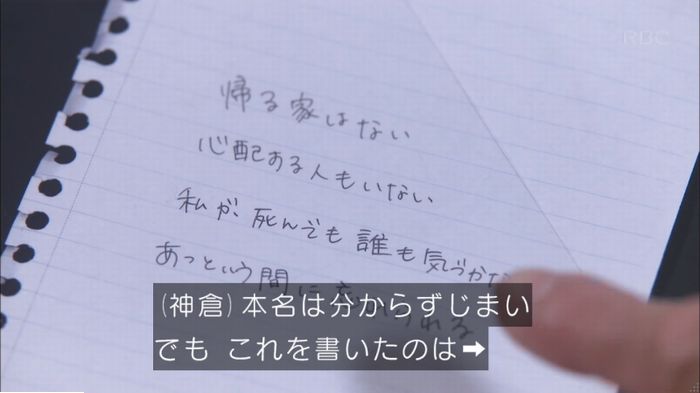 RBC
帰る家はない
心配ある人もいない
私が死んでも誰も気づかな
あっという間に
(神倉)本名は分からずじまい
でも これを書いたのは➡